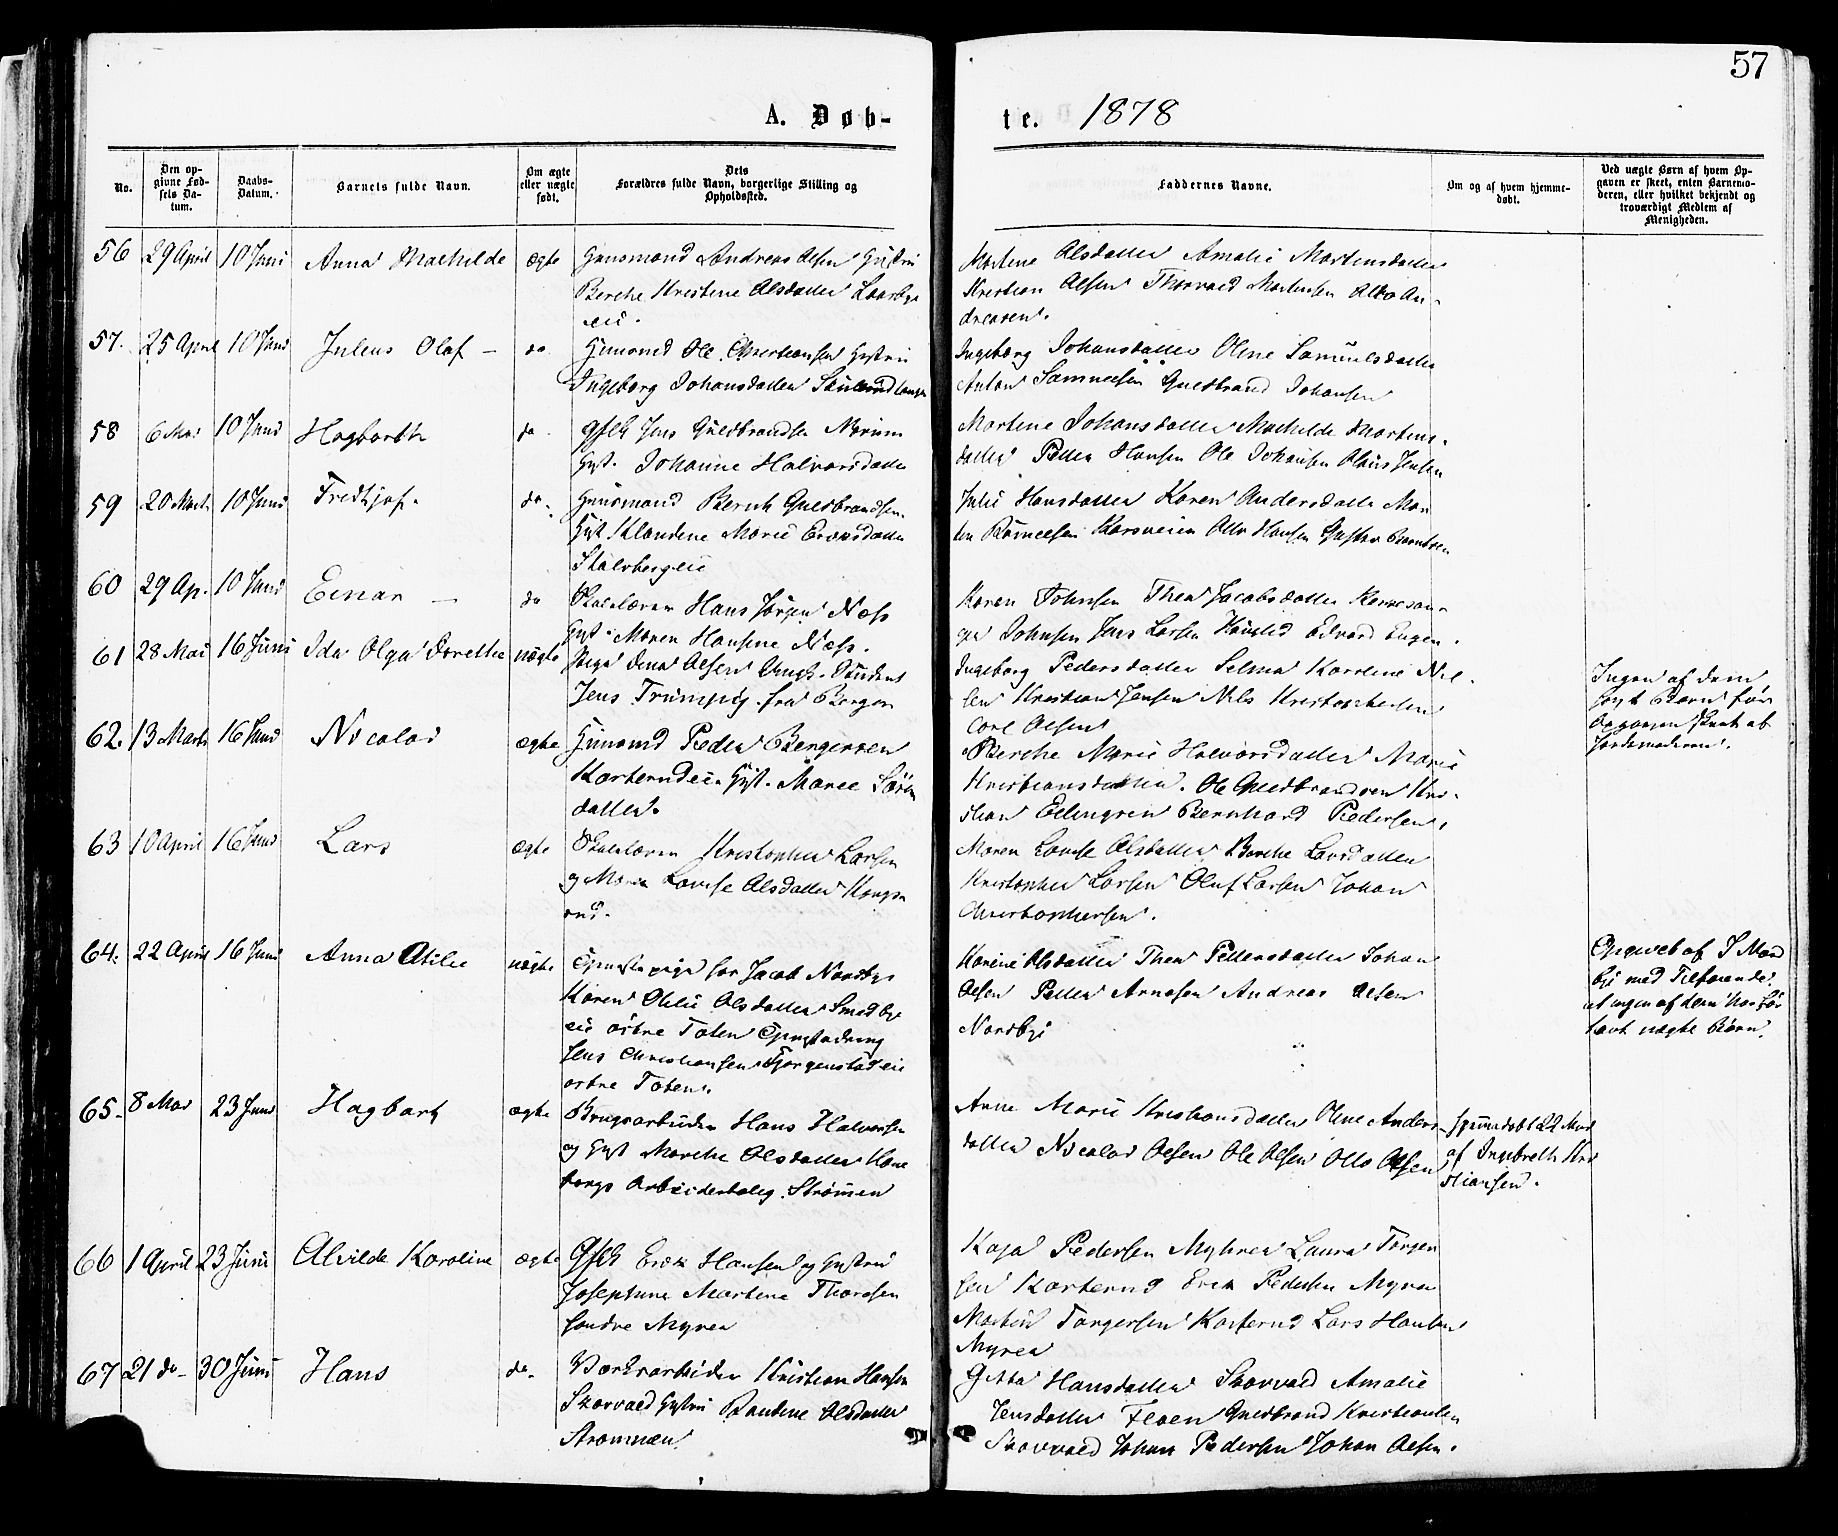 57
A. Døb-
te. 1878
No.
Den opgivne Fødsels Datum.
Daabs-Datum.
Barnets fulde Navn.
Om ægte eller uægte født.
Dets Forældres fulde Navn, borgerlige Stilling og Opholdssted.
Faddernes Navne.
Om og af hvem hjemmedøbt.
Ved uægte Børn af hvem Opgaven er skeet, enten Barnemoderen, eller hvilket bekjendt og troværdigt Medlem af Menigheden.
56 29 April 10 Juni Anna Mathilde ægte Huusmand Andreas Olsen Hustru
Berthe Kristine Olsdatter
Martene Olsdatter Amalie Martensdatter
Kristian Olsen Thorvald Martensen Otto An-
dreasen.
57. 25 April 10 Juni Julius Olaf – do Huusmd Ole Christiansen Hustru
Ingeborg Johansdatter
Ingeborg Johansdatter Oline Samuelsdatter
Anton Samuelsen Guldbrand Johansen
58 6 Mai 10 Juni Hagbarth do. Gfst Jens Guldbrandsen
Hust. Johanne Halvorsdatter
Martene Johansdatter Mathilde Martens-
datter Petter Hansen Ole Johansen Olaus Jensen
59 20 Marts 10 Juni Fredtjof. do. Huusmand Bernt Guldbrandsen.
Hust. Klaudine Marie
Stalsbergeie
Julie Hansdatter Karen Andersdatter Mar
Otto Hansen Gustav Berntsen
60 29 Ap. 10 Juni Einar – do Skolelærer Hans Jørgen Næss
Hust. Maren Hansine Næss.
Karen Johnsen Thea Jacobsdatter
Johnsen Jens Larsen Edvard Eugen.
61 28 Mai 16 Juni Ida Olga Dorethea uægte Pige Dina Olsen Ungk. Student
Jens Trumpy. fra Bergen
Ingeborg Pedersdatter Selma Karoline Nil-
sen Kristian Jensen Nils Kristophersen
Carl Olsen
Ingen af dem
havt Børn før
Opgaven skeet af
Jordemoderen.
62. 13 Marts 16 Juni Nicolai ægte Huusmd Peder Bergersen
Karterudeie Hust. Maree Søren
datter.
Berthe Marie Halvorsdatter Marie
Kristiansdatter. Ole Guldbrandsen Kri-
stian Ellingsen Bernhard Pedersen.
63 10 April 16 Juni Lars ægte Skolelærer Kristopher Larsen
og Maren Lovise Olsdatter
Maren Lovise Olsdatter Berthe Larsdatter
Kristopher Larsen Oluf Larsen Johan
Christophersen.
64. 22 April 16 Juni Anna Otilie uægte Tjenestepige for Jacob Nordby
Karen Otilie Olsdatter Smedby
eie østre Toten Tjenestedreng
Jens Christiansen
østre Toten.
Karine Olsdatter Thea Pettersdatter Johan
Olsen Petter Arnesen Andreas Olsen
Nordby
Opgivet af J Nord
by med Tilføiende
at ingen af dem har før
havt uægte Børn.
65. 8 Mai 23 Juni Hagbart ægte Brugsarbeider Hans Halvorsen
og Hust Marthe Olsdatter
Arbeiderbolig Strømen
Anne Marie Kristiansdatter Oline Anders-
datter Nicolai Olsen Ole Olsen Otto Olsen
Hjemmedøbt 22 Mai
af Ingebreth Kri
stiansen.
66 1 April 23 Juni Alvilde Karoline ægte Gfst Erik Hansen og Hustru
Josephine Martene Thoresen
søndre Myrer
Kaja Pedersen Myhrer Laura Torger
sen Karterud Erik Pedersen Myrer
Martin Torgersen Karterud Lars Hansen
Myrer
67 21 do – 30 Juni Hans do. Værksarbeider Kristian Hansen
Skarvald Hustru Olsdatter
Strømmen
Hansdatter Skarvald Amalie
Jensdatter Floen Guldbrand Kristiansen
Skarvald Johan Pedersen Johan Olsen.